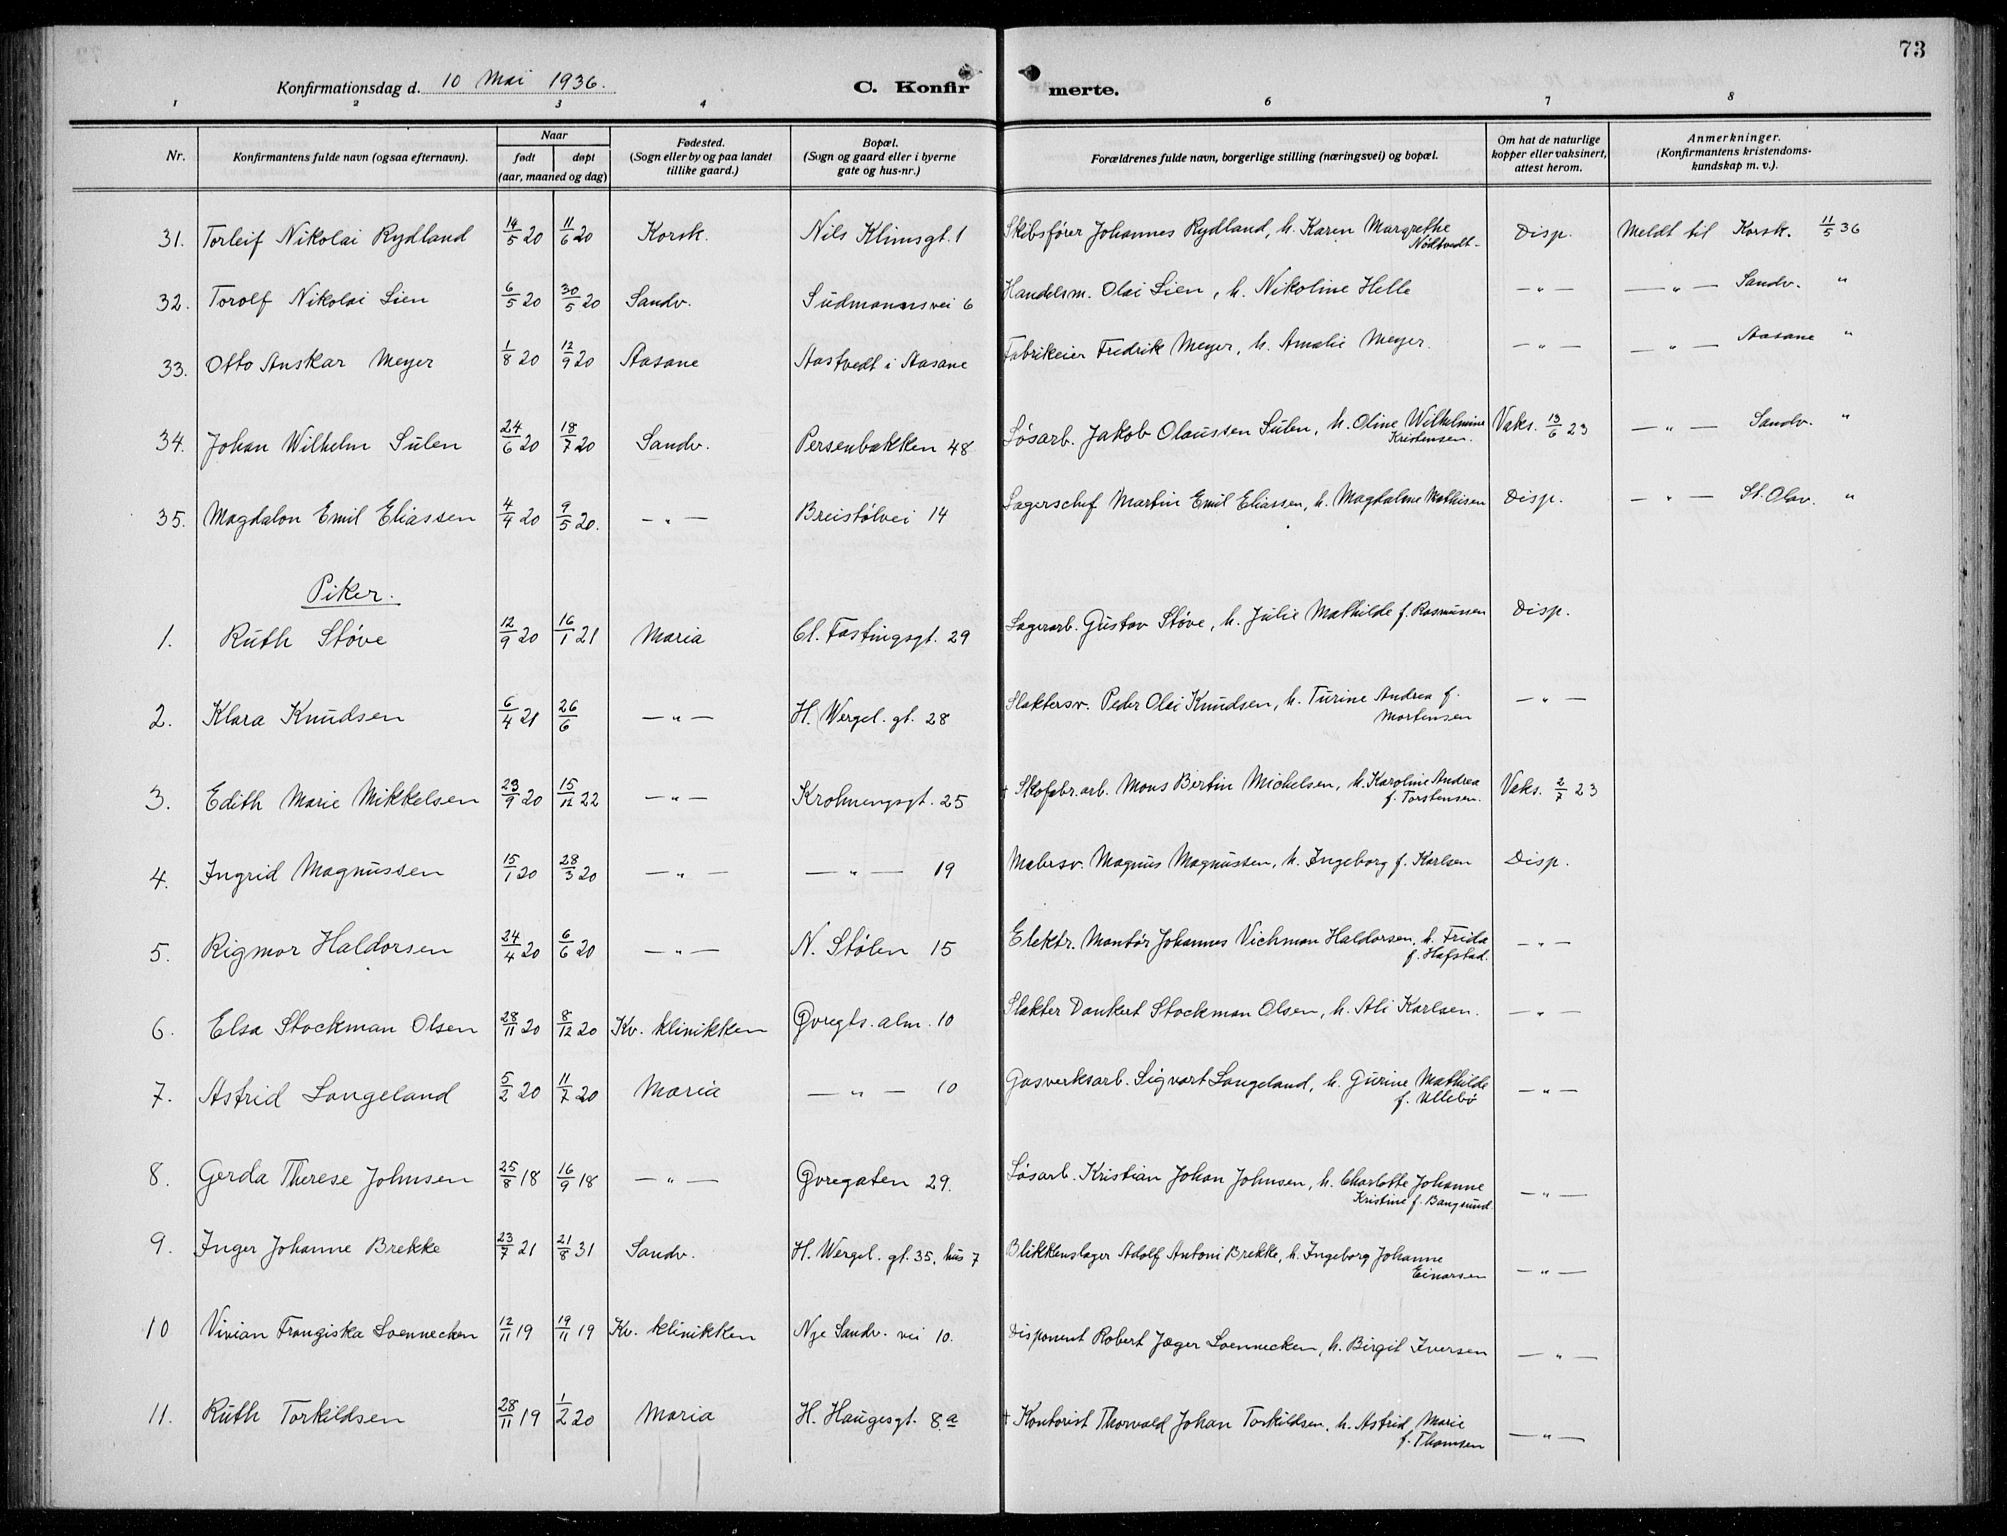 73
Konfirmationsdag d. 10 Mai 1936.
C. Konfirmerte.
1 2 3 4 6 7 8
Nr. Konfirmantens fulde navn (ogsaa efternavn). Naar født døpt (aar, maaned og dag) Fødested. (Sogn eller by og paa landet tillike gaard.) Bopæl. (Sogn og gaard eller i byerne gate og hus-nr.) Forældrenes fulde navn, borgerlige stilling (næringsvei) og bopæl. Om hat de naturlige kopper eller vaksinert, attest herom. Anmerkninger. (Konfirmantens kristendomskundskap m. v.).
31. Torleif Nikolai Rydland 14/5 20 11/6 20 Korsk. Nils Klimsgt. 1 Skibsfører Johannes Rydland, h. Karen Margrethe Nødtvedt - Disp. Meldt til Korsk. 11/5 36
32. Torolf Nikolai Lien 6/5 20 30/5 20 Sandv. Sudmannsvei 6 Handelsm. Olai Lien, h. Nikoline Helle — " — — " — Sandv. "
33. Otto Anskar Meyer 1/8 20 12/9 20 Aasane Aastvedt i Aasane Fabrikeier Fredrik Meyer, h. Amalie Meyer. — " — — " — Aasane "
34. Johan Wilhelm Sulen 24/6 20 18/7 20 Sandv. Persenbakken 48 Løsarb. Jakob Olaussen Sulen, h. Oline Wilhelmine Kristensen. Vaks. 13/6 23 — " — Sandv. "
35. Magdalon Emil Eliassen 4/4 20 9/5 20. — " — Breistølvei 14 Lagerschef Martin Emil Eliassen, h. Magdalene Mathisen Disp. — " — St. Olav. "
Piker.
1. Ruth Støve 12/9 20 16/1 21 Maria Cl. Fastingsgt. 29 Lagerarb. Gustav Støve, h. Julie Mathilde f. Rasmussen Disp.
2. Klara Knudsen 6/4 21 26/6 — " — H. Wergel. gt. 28 Slaktersv. Peder Olai Knudsen, h. Turine Andrea f. Mortensen — " —
3. Edith Marie Mikkelsen 23/9 20 15/12 22 — " — Krohnengsgt. 25 + Skofabr. arb. Mons Bertin Michelsen, h. Karoline Andrea f. Torstensen. Vaks. 2/7 23
4. Ingrid Magnussen 15/1 20 28/3 20 — " — — " — 19 Malersv. Magnus Magnussen, h. Ingeborg f. Karlsen Disp.
5. Rigmor Haldorsen 24/4 20 6/6 20 — " — N. Stølen 15 Elektr. Montør Johannes Vichman Haldorsen, h. Frida f. Hafstad. — " —
6. Elsa Stockman Olsen 28/11 20 8/12 20 Kv. klinikken Øvregts. alm. 10 Slakter Dankert Stockman Olsen, h. Ali Karlsen. — " —
7. Astrid Langeland 5/2 20 11/7 20 Maria — " — 10 Gasverksarb. Sigvart Langeland, h. Gurine Mathilde f. Ullebø — " —
8. Gerda Therese Johnsen 25/8 18 16/9 18 — " — Øvregaten 29. Løsarb. Kristian Johan Johnsen, h. Charlotte Johanne Kristine f. Bangsund. — " —
9. Inger Johanne Brekke 23/7 21 21/8 31 Sandv. H. Wergel. gt. 35, hus 7 Blikkenslager Adolf Antoni Brekke, h. Ingeborg Johanne Einarsen — " —
10 Vivian Frangiska Soennecken 12/11 19 19/11 19 Kv. klinikken Nye Sandv. vei 10. Disponent Robert Jæger Soennecken, h. Birgit Iversen — " —
11. Ruth Torkildsen 28/11 19 1/2 20 Maria H. Haugesgt. 8a + Kontorist Thorvald Johan Torkildsen, h. Astrid Marie f. Thomsen — " —